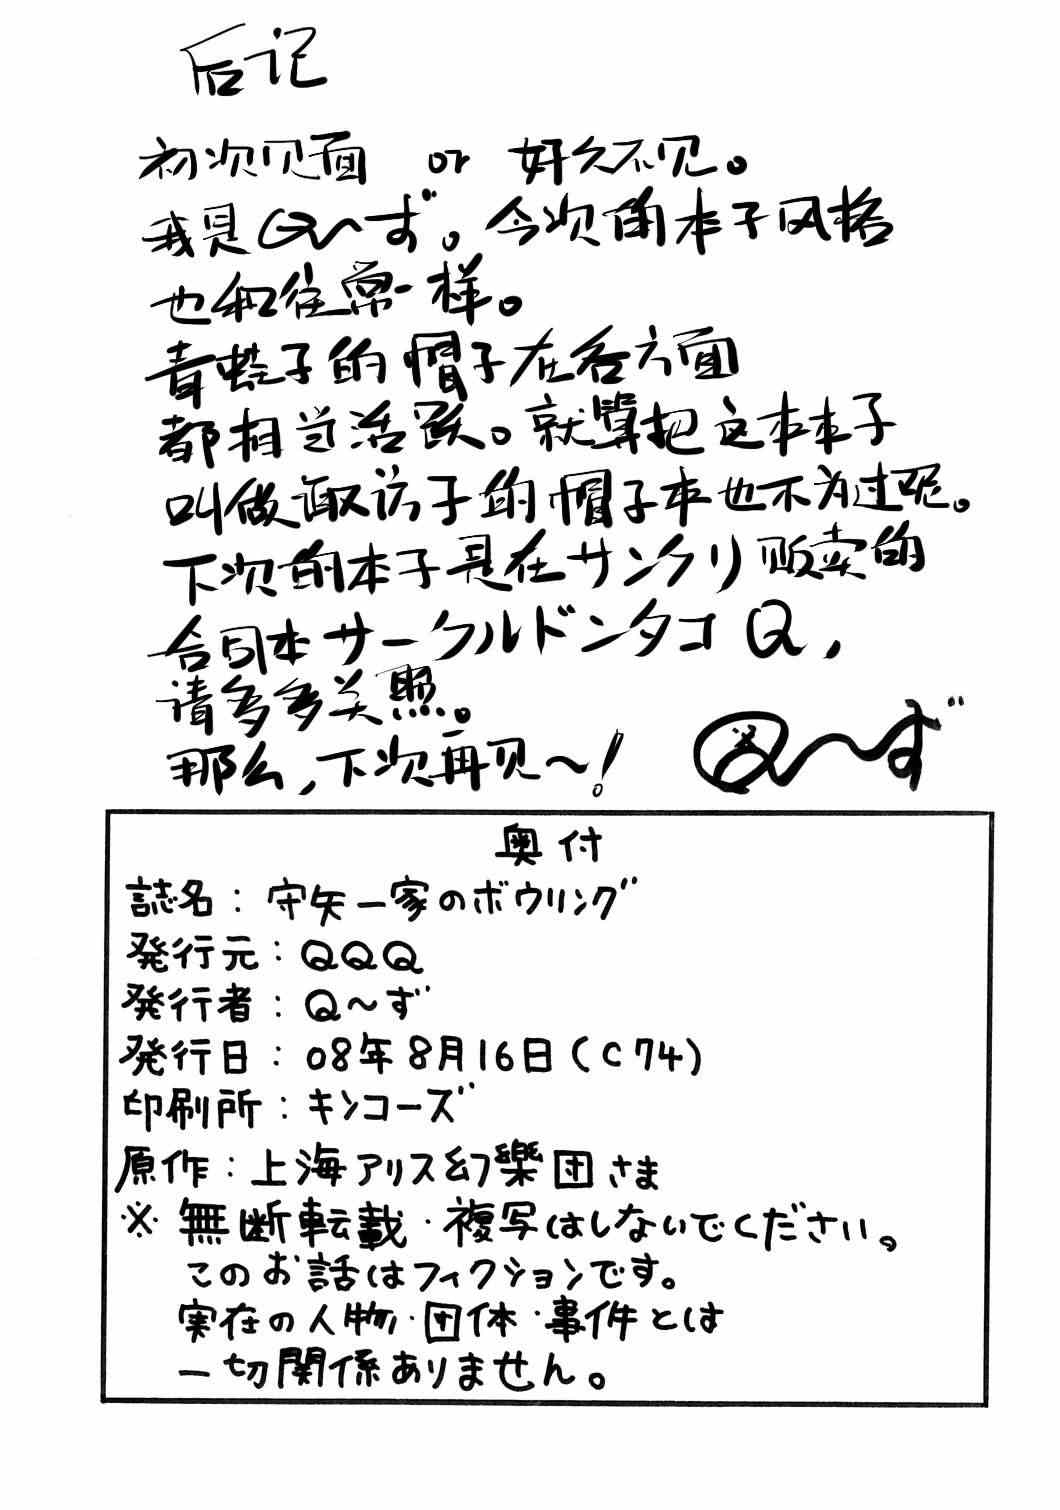 后记
初次见面 or 好久不见。
我是Q～ず。今次的本子风格
也和往常一样。
青蛙子的帽子在各方面
都相当活跃。就算把这本本子
叫做诹访子的帽子本也不为过呢。
下次的本子是在サンクリ贩卖的
合同本サークルドンタコQ,
请多多关照。
那么,下次再见～!
Q～ず
奥付
誌名：守矢一家のボウリング
発行元：QQQ
発行者：Q～ず
発行日：08年8月16日(C74)
印刷所：キンコーズ
原作：上海アリス幻樂団さま
※無断転載・複写はしないでください。
このお話はフィクションです。
実在の人物・団体・事件とは
一切関係ありません。